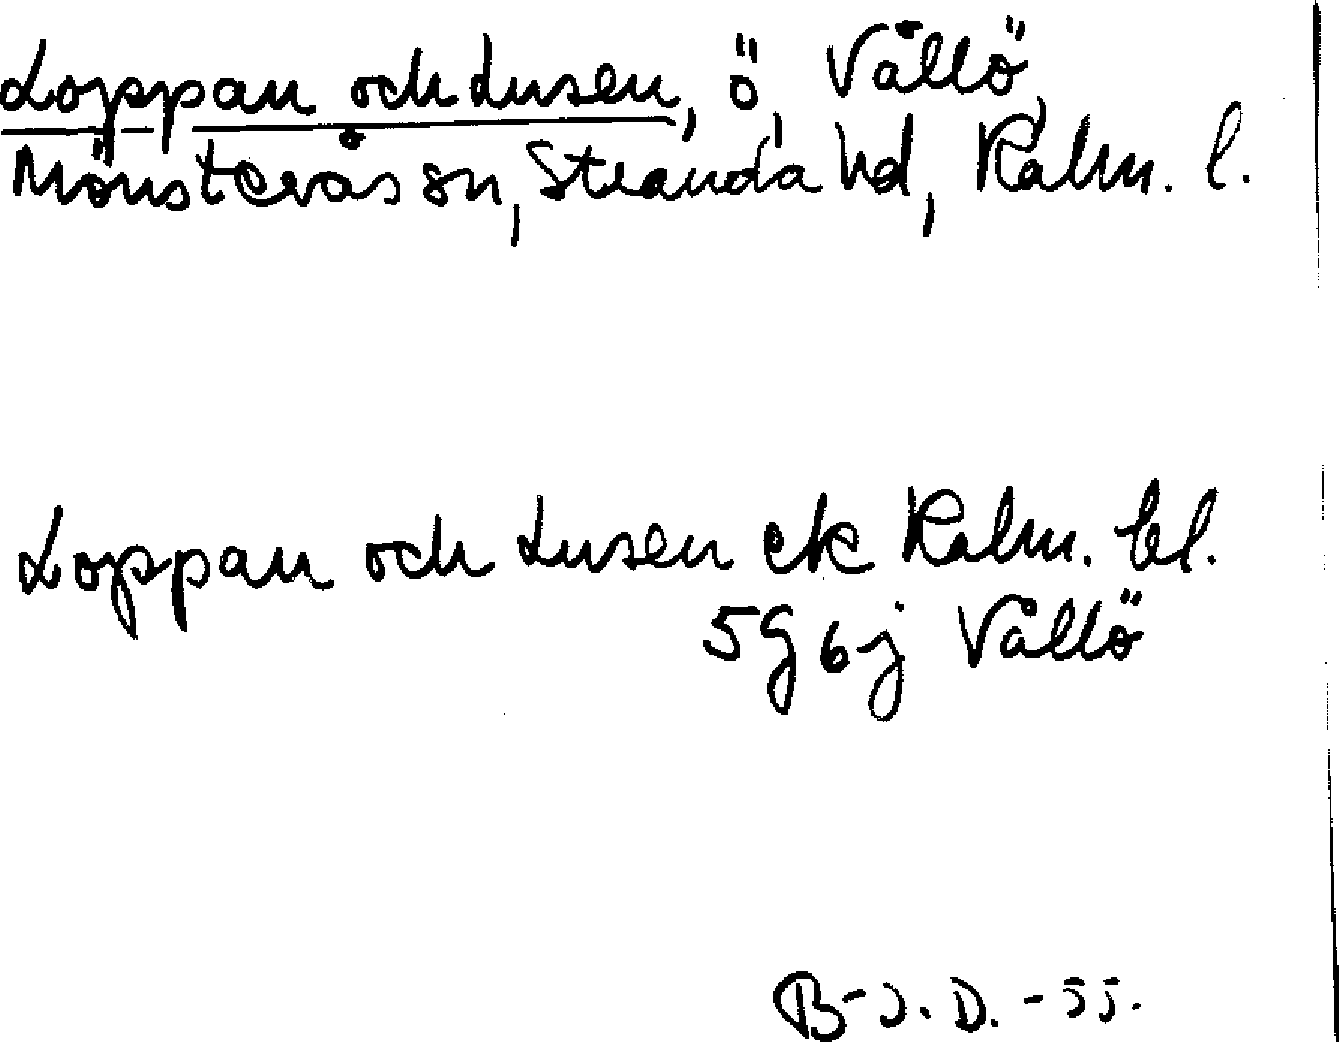 Loppan och Lusen, ö, Vållö,
Mönsterås sn, Stranda hd, Kalm. l.
Loppan och Lusen ek Kalm. bl.
5G 6j Vållö
B-J. D. -55.